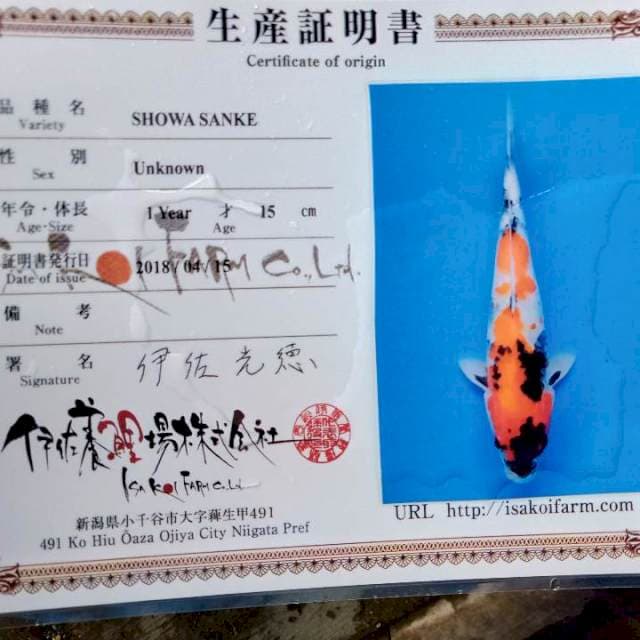 生産証明書
Certificate of origin
品種名
Variety
SHOWA SANKE
性別
Sex
Unknown
年令・体長
Age・Size
1 Year 才 15 cm
Age
証明書発行日
Date of issue
2018/04/15
KOI FARM Co., Ltd.
備考
Note
署名
Signature
伊佐光徳
伊佐養鯉場株式会社
ISA KOI FARM Co.Ltd
新潟県小千谷市大字薭生甲491
491 Ko Hiu Ōaza Ojiya City Niigata Pref
URL http://isakoifarm.com